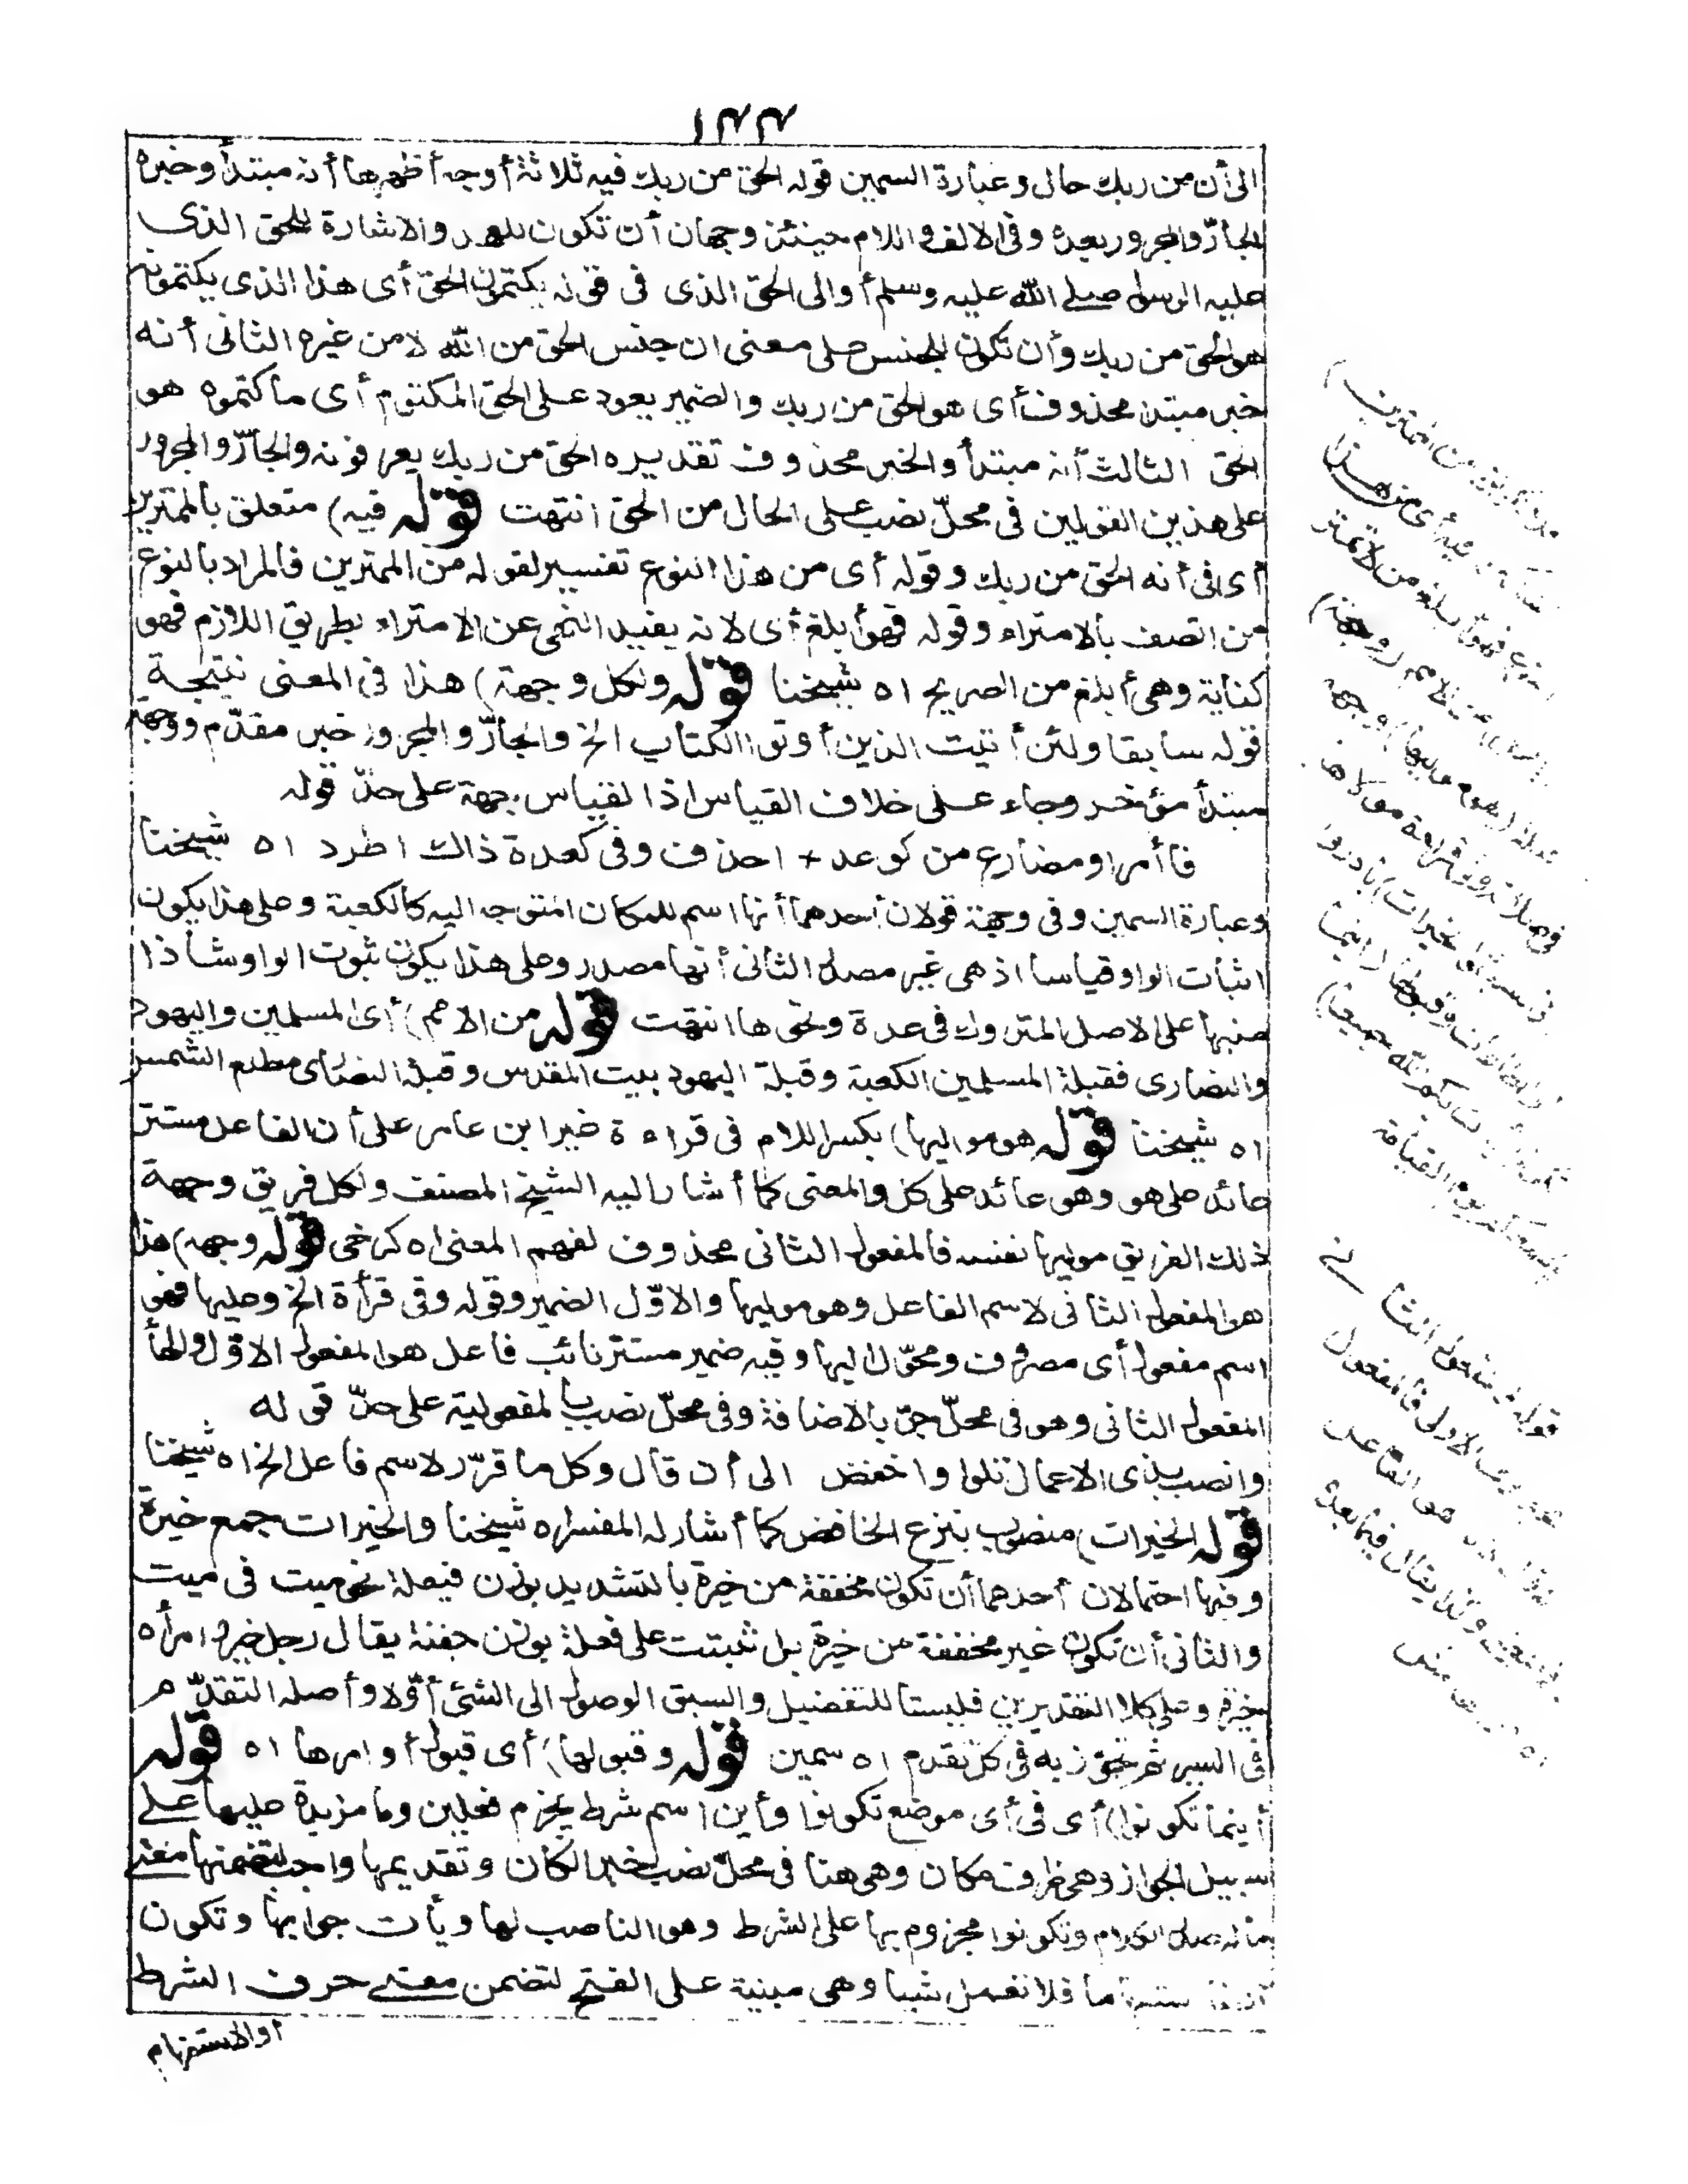 ١٣٣
الى أن من ربك حال وعبارة السمين قوله الحق من ربك فيه ثلاثة أوجه أظهرها أنه مبتدأ وخبره
الجارّ والمجرور بعده وفى الالف واللام حينئذ وجهان أن تكون للعهد والاشارة للحق الذى
عليه الرسول صلى الله عليه وسلم أو الى الحق الذى فى قوله يكتمون الحق أى هذا الذى يكتمونه
هو الحق من ربك وأن تكون للجنس على معنى ان جنس الحق من الله لا من غيره الثانى أنه
خبر مبتدا محذوف أى هو الحق من ربك والضمير يعود على الحق المكتوم أى ما كتموه هو
الحق الثالث أنه مبتدأ والخبر محذوف تقديره الحق من ربك يعرفونه والجارّ والمجرور
على هذين القولين فى محلّ نصب على الحال من الحق انتهت قوله فيه) متعلق بالممترين
أى فى أنه الحق من ربك وقوله أى من هذا النوع تفسير لقوله من الممترين فالمراد بالنوع
من اتصف بالامتراء وقوله فهو أبلغ أى لانه يفيد النهى عن الامتراء بطريق اللازم فهو
كناية وهى أبلغ من الصريح اه شيخنا قوله ولكل وجهة) هذا فى المعنى نتيجة
قوله سابقا ولئن أتيت الذين أوتوا الكتاب الخ والجارّ والمجرور خبر مقدّم ووجهة
مبتدأ مؤخر وجاء على خلاف القياس اذ القياس جهة على حدّ قوله
فا أمر او مضارع من كوعد + احذف وفى كعدة ذاك اطرد اه شيخنا
وعبارة السمين وفى وجهة قولان أحدهما أنها اسم للمكان المتوجه اليه كالكعبة وعلى هذا يكون
اثبات الواو قياسا اذ هى غير مصدر الثانى أنها مصدر وعلى هذا يكون ثبوت الواو شاذا
منبها على الاصل المتروك فى عدة ونحوها انتهت قوله من الامم) أى المسلمين واليهود
والنصارى فقبلة المسلمين الكعبة وقبلة اليهود بيت المقدس وقبلة النصارى مطلع الشمس
اه شيخنا قوله هو موليها) بكسر اللام فى قراءة غير ابن عامر على أن الفاعل مستتر
عائد على هو وهو عائد على كل والمعنى كما أشار اليه الشيخ المصنف ولكل فريق وجهة
ذلك الفريق موليها نفسه فالمفعول الثانى محذوف لفهم المعنى اه كرخى قوله وجهه) هذا
هو المفعول الثانى لاسم الفاعل وهو موليها والاوّل الضمير وقوله وفى قرأة الخ وعليها فهو
اسم مفعول أى مصروف ومحوّل اليها وفيه ضمير مستتر نائب فاعل هو المفعول الاوّل والهأ
المفعول الثانى وهو فى محلّ جرّ بالاضافة وفى محلّ نصب بالمفعولية على حدّ قوله
وانصب بذى الاعمال تلوا واخفض الى أن قال وكل ما قرّر لاسم فاعل الخ اه شيخنا
قوله الخيرات) منصوب بنزع الخافض كما أشار له المفسر اه شيخنا والخيرات جمع خيرة
وفيها احتمالان أحدهما أن تكون مخففة من خيرة بالتشديد بوزن فيعلة نحو ميت فى ميت
والثانى أن تكون غير مخففة من خيرة بل ثبتت على فعلة بوزن جفنة يقال رجل خير وامرأه
خيرة وعلى كلا التقديرين فليستا للتفضيل والسبق الوصول الى الشئ أوّلا وأصله التقدّم
فى السير ثم تجوّز به فى كل تقدم اه سمين قوله وقبولها) أى قبول أوامرها اه قوله
أينما تكونوا) أى فى أى موضع تكونوا وأين اسم شرط يجزم فعلين وما مزيدة عليها على
سبيل الجواز وهى ظرف مكان وهى هنا فى محلّ نصب خبر الكان وتقديمها واجب لتضمنها معنى
ماله صدر الكلام وتكونوا مجزوم بها على الشرط وهو الناصب لها ويأت جوابها وتكون
استفهاما فلا تعمل شيا وهى مبنية على الفتح لتضمن معنى حرف الشرط
أو الاستفهام
فيه أى من هذا
النوع فهو أبلغ من لا تمتر
من الامم (وجهة)
فى صلاته وفى قراءة مولاها
الخيرات) بادروا
الى الطاعات وقبولها (اينما
تكونوا يأت بكم الله جميعا)
يوم القيامة
قوله
هو الفاعل